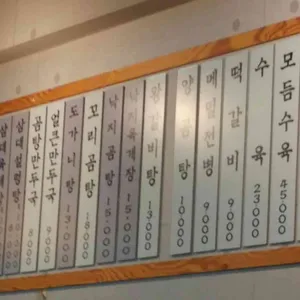 모듬수육 45000
수육 23000
떡갈비 9000
메밀전병 9000
양곰탕 10000
왕갈비탕 13000
낙지육개장 15000
낙지곰탕 15000
꼬리곰탕 18000
도가니탕 13000
얼큰만두국 9000
곰탕만두국 8000
삼대설렁탕